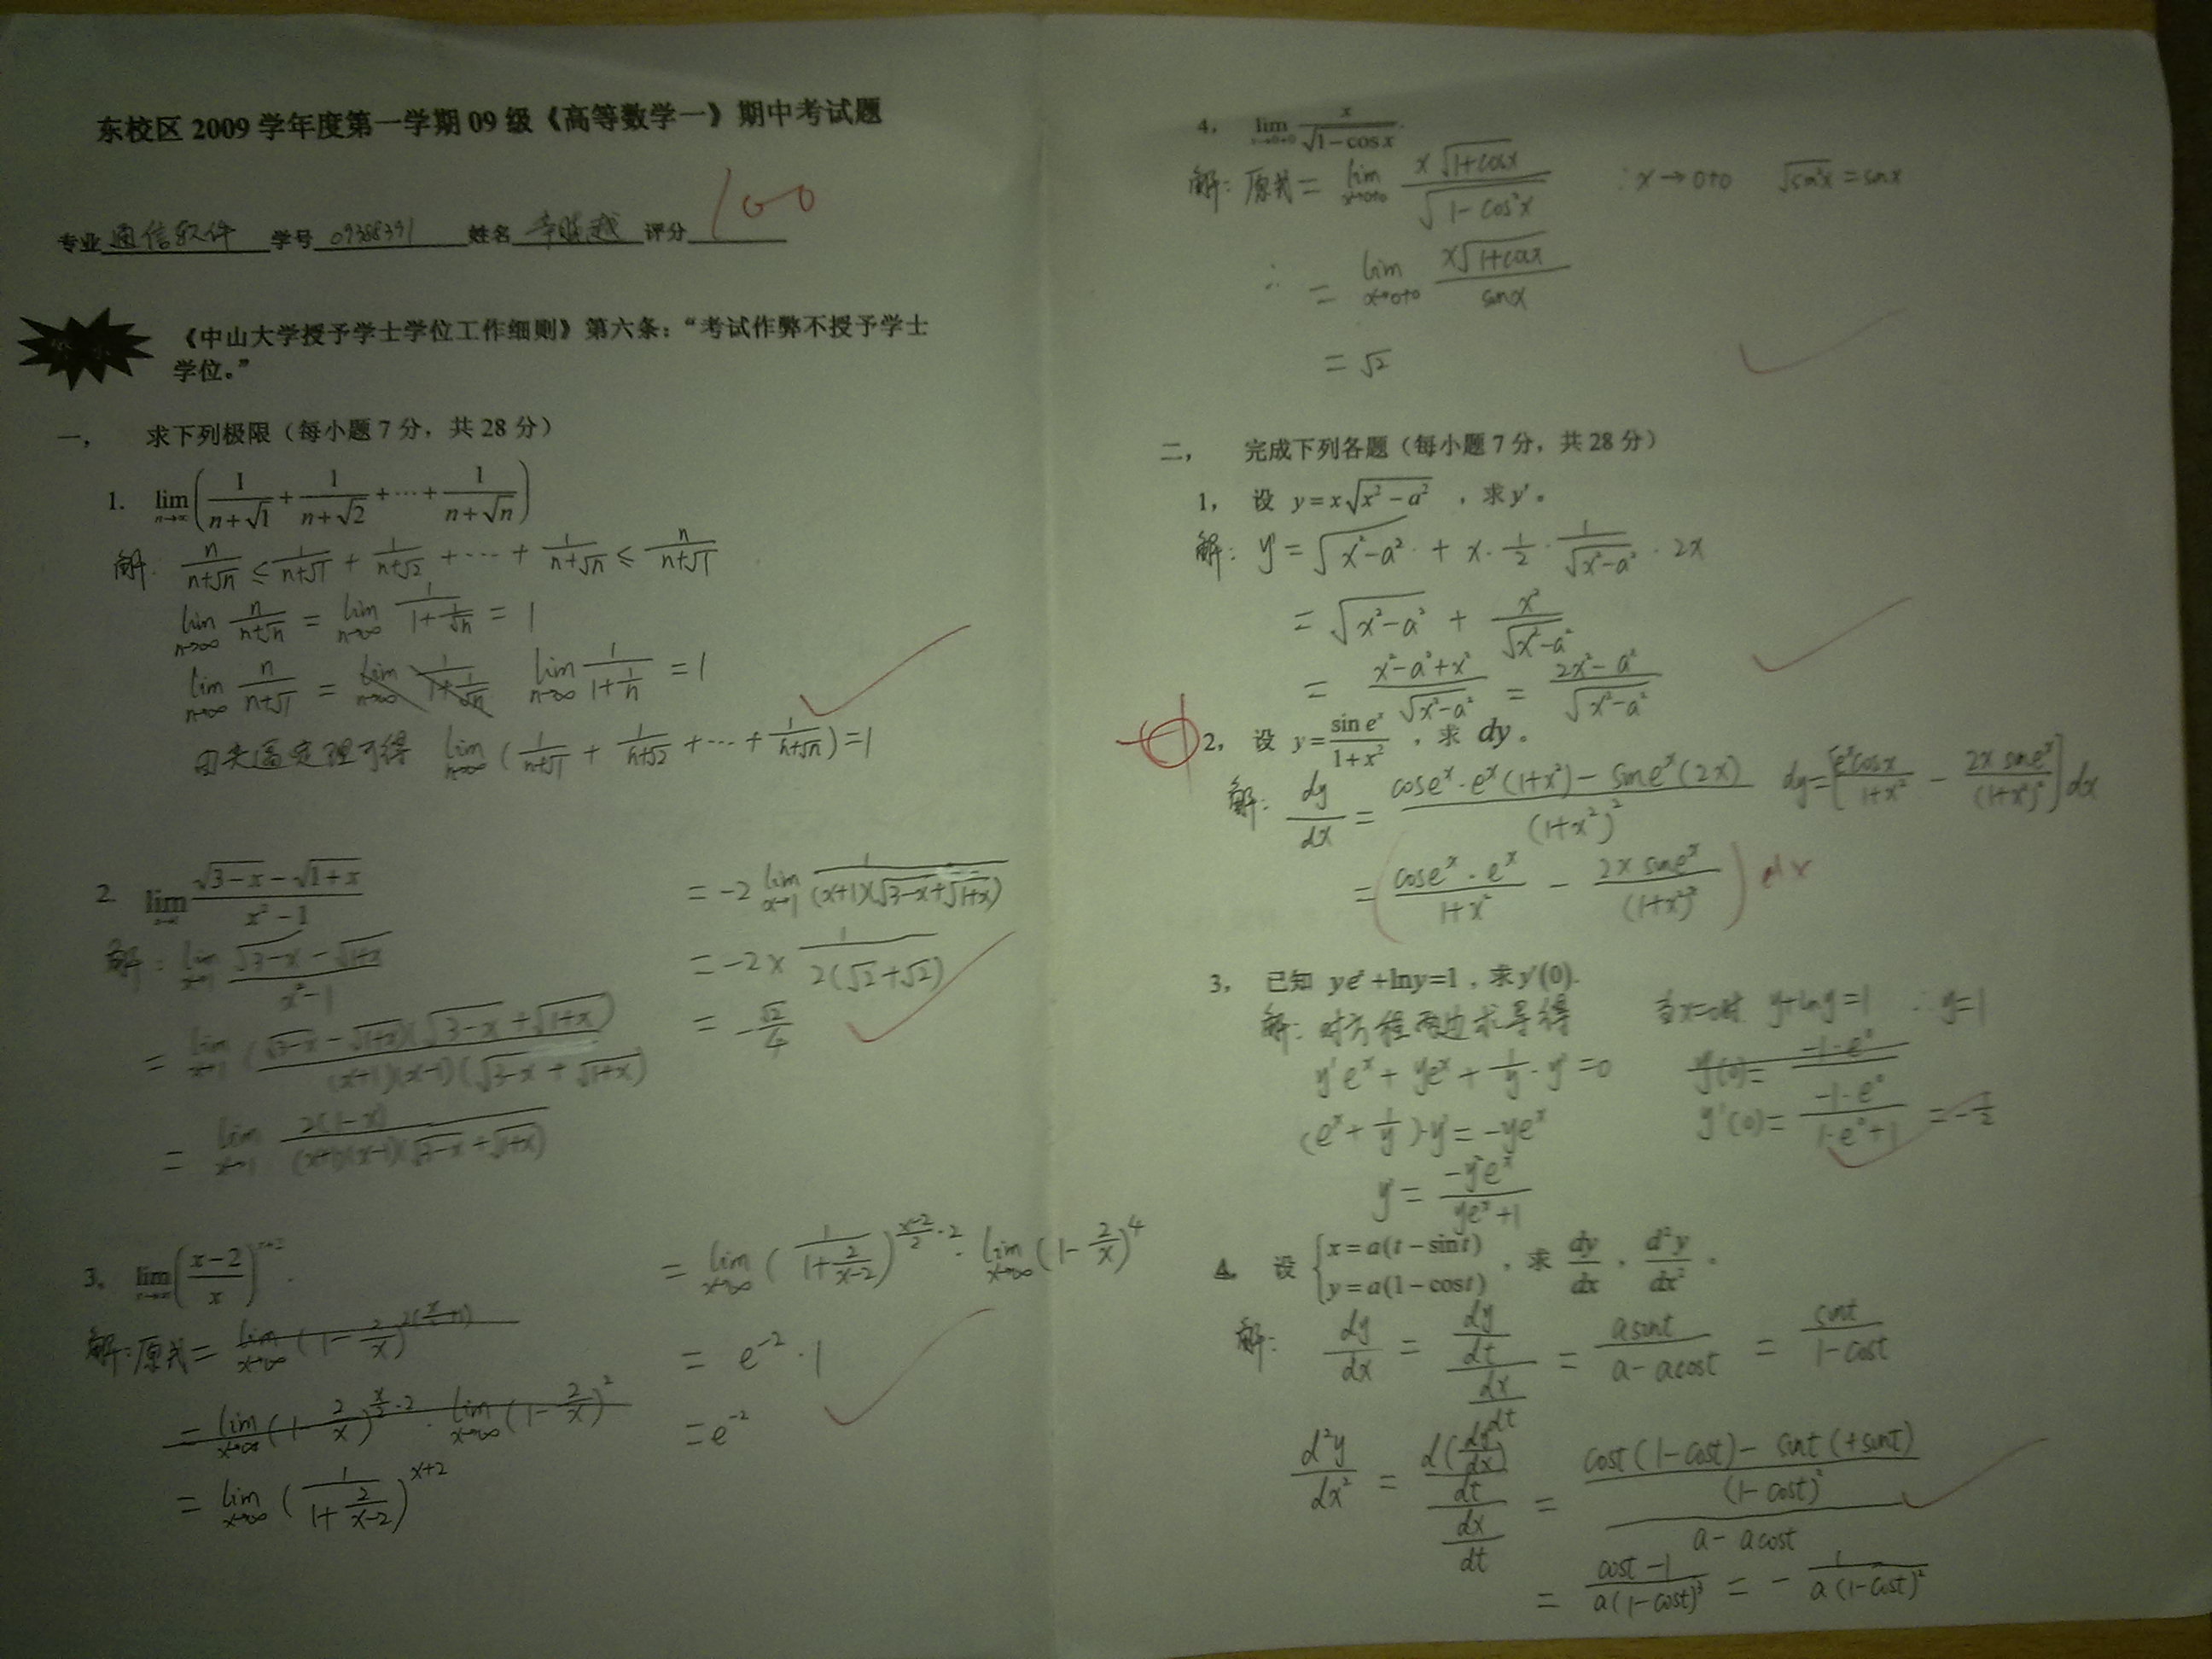 东校区 2009 学年度第一学期 09 级《高等数学一》期中考试题
专业 通信软件 学号 09388391 姓名 评分 100
《中山大学授予学士学位工作细则》第六条：“考试作弊不授予学士
学位。”
一， 求下列极限（每小题 7 分，共 28 分）
1. lim n→∞ (1/(n+√1) + 1/(n+√2) + ⋯ + 1/(n+√n))
解: n/(n+√n) ≤ 1/(n+√1) + 1/(n+√2) + ⋯ + 1/(n+√n) ≤ n/(n+√1)
lim n→∞ n/(n+√n) = lim n→∞ 1/(1+1/√n) = 1
lim n→∞ n/(n+√1) = lim n→∞ 1/(1+1/√n) lim n→∞ 1/(1+1/n) = 1
由夹逼定理可得 lim n→∞ (1/(n+√1) + 1/(n+√2) + ⋯ + 1/(n+√n)) = 1
2. lim x→1 (√(3-x) - √(1+x))/(x²-1)
解: lim x→1 (√(3-x) - √(1+x))/(x²-1)
= lim x→1 (√(3-x) - √(1+x))(√(3-x) + √(1+x))/((x+1)(x-1)(√(3-x) + √(1+x)))
= lim x→1 2(1-x)/((x+1)(x-1)(√(3-x) + √(1+x)))
= -2 lim x→1 1/((x+1)(√(3-x) + √(1+x)))
= -2 × 1/(2(√2+√2))
= -√2/4
3， lim x→∞ ((x-2)/x)^(x+2)
解: 原式 = lim x→∞ (1-2/x)^(2(x/2+1))
= lim x→∞ (1-2/x)^(x/2·2) · lim x→∞ (1-2/x)²
= lim x→∞ (1/(1+2/(x-2)))^(x+2)
= lim x→∞ (1/(1+2/(x-2)))^((x-2)/2·2) · lim x→∞ (1-2/x)⁴
= e⁻² · 1
= e⁻²
4， lim x→0+0 x/√(1-cos x)
解: 原式 = lim x→0+0 x√(1+cosx)/√(1-cos²x) ∵ x→0+0 √(sin²x) = sinx
∴ = lim x→0+0 x√(1+cosx)/sinx
= √2
二， 完成下列各题（每小题 7 分，共 28 分）
1， 设 y = x√(x²-a²) ，求 y'。
解: y' = √(x²-a²) + x · 1/2 · 1/√(x²-a²) · 2x
= √(x²-a²) + x²/√(x²-a²)
= (x²-a²+x²)/√(x²-a²) = (2x²-a²)/√(x²-a²)
-1
2， 设 y = sin eˣ/(1+x²) ，求 dy。
解: dy/dx = (coseˣ·eˣ(1+x²) - sineˣ(2x))/(1+x²)² dy = [eˣcosx/(1+x²) - 2x sineˣ/(1+x²)²]dx
= (coseˣ·eˣ/(1+x²) - 2x sineˣ/(1+x²)²) dx
3， 已知 yeˣ+lny=1，求 y'(0).
解: 对方程两边求导得 当x=0时 y+lny=1 ∴ y=1
y'eˣ + yeˣ + 1/y · y' = 0 y'(0) = -1·e⁰
(eˣ + 1/y)·y' = -yeˣ y'(0) = -1·e⁰/(1·e⁰+1) = -1/2
y' = -y²eˣ/(yeˣ+1)
4. 设 {x=a(t-sint) y=a(1-cost) ，求 dy/dx，d²y/dx²。
解: dy/dx = (dy/dt)/(dx/dt) = asint/(a-acost) = sint/(1-cost)
d²y/dx² = (d(dy/dx)/dt)/(dx/dt) = ((cost(1-cost) - sint(+sint))/(1-cost)²)/(a-acost)
= (cost-1)/(a(1-cost)³) = -1/(a(1-cost)²)